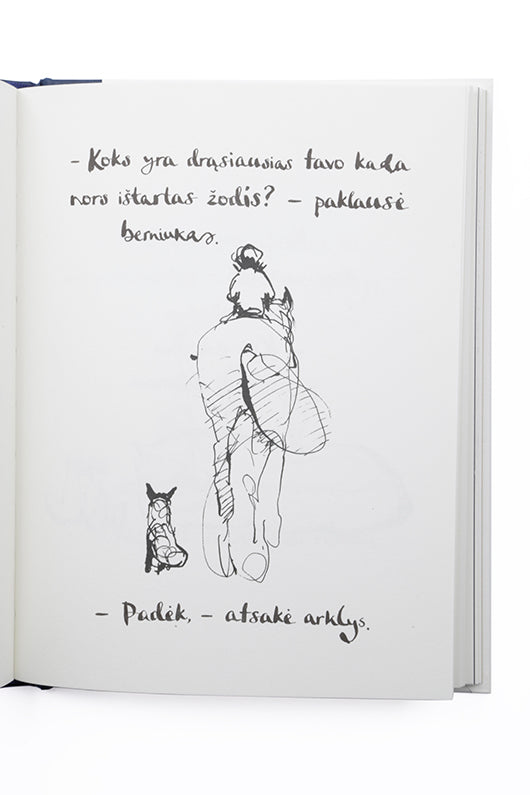 - Koks yra drąsiausias tavo kada
nors ištartas žodis? - paklausė
berniukas.
- Padėk, - atsakė arklys.